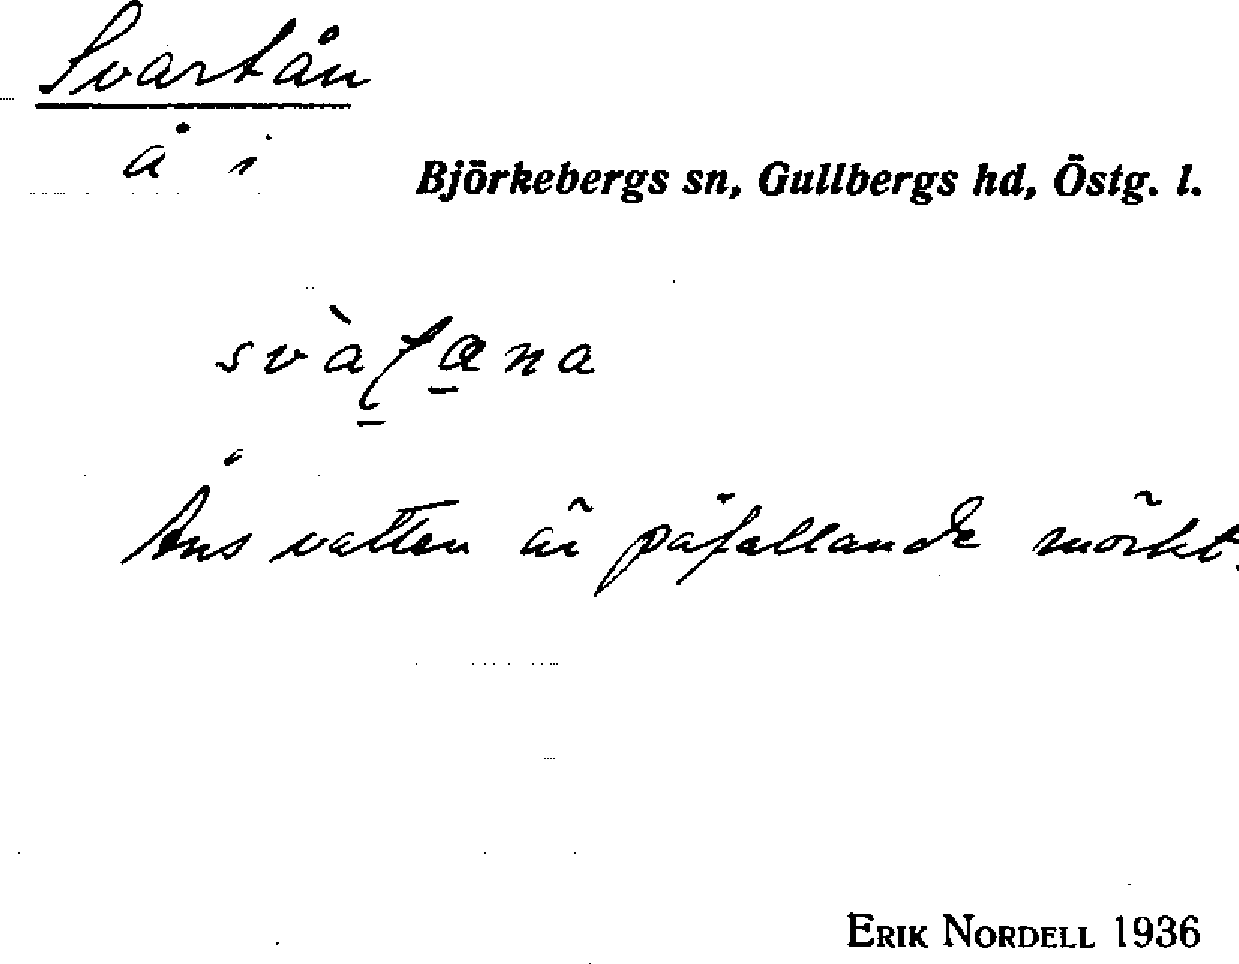 Svartån
å i Björkebergs sn, Gullbergs hd, Östg. l.
Åns vatten är påfallande mörkt.
ERIK NORDELL 1936